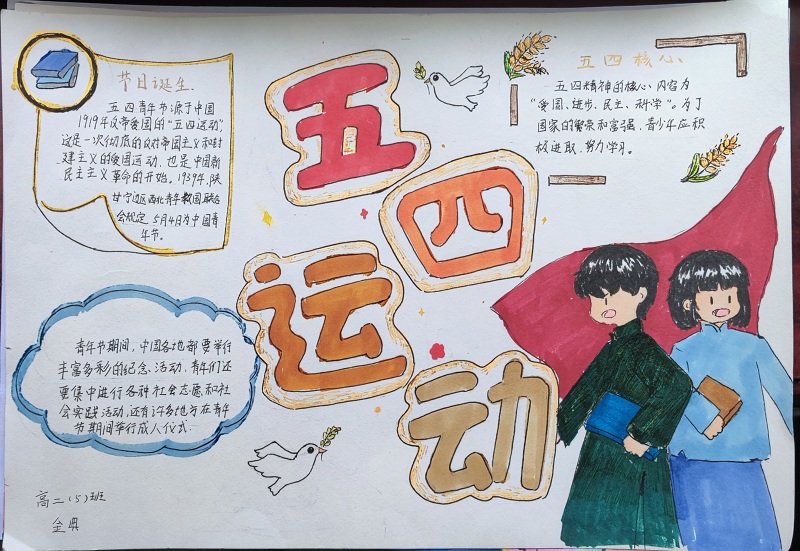 节日诞生
五四青年节源于中国
1919年反帝爱国的“五四运动”,
这是一次彻底的反对帝国主义和封
建主义的爱国运动,也是中国新
民主主义革命的开始。1939年,陕
甘宁边区西北青年救国联合
会规定,5月4日为中国青
年节。
五
四
运
动
五四核心
五四精神的核心内容为
“爱国、进步、民主、科学”。为了
国家的繁荣和富强,青少年应积
极进取,努力学习。
青年节期间,中国各地都要举行
丰富多彩的纪念、活动,青年们还
更集中进行各种社会志愿和社
会实践活动,还有许多地方在青年
节期间举行成人仪式.
高二(5)班
金典